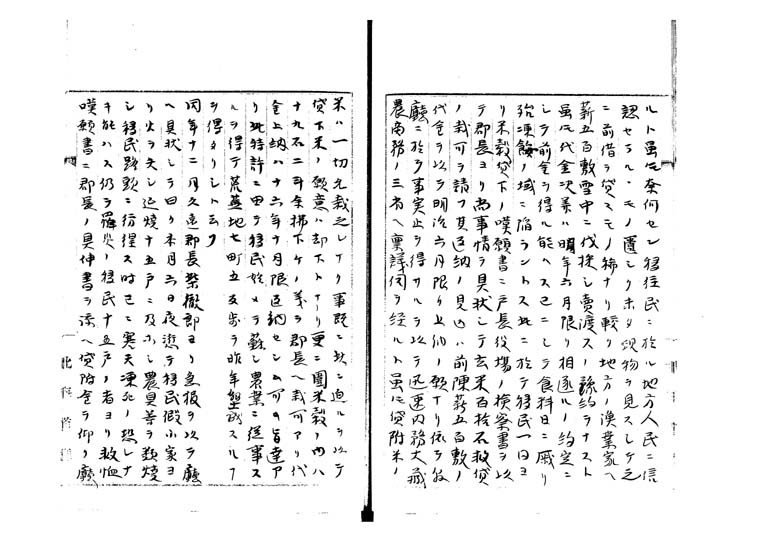 ルト雖モ奈何セン移住民ニ於ル地方人民ニ信
認セラル、モノ置シク亦タ現物ヲ見スシテ之
ニ前借ヲ貸スモノ稀ナリ較リ地方ノ漁業家ヘ
薪五百敷雪中ニ伐採シ賣渡スノ諾約ヲナスト
雖モ代金次第ハ明年六月限リ相遂ルノ約定ニ
シテ前金ヲ得ル能ハス已ニシテ食料日ニ戚リ
殆凍餒ノ域ニ陥ラントス此ニ於テ移民一同ヨ
リ米穀貸下ノ嘆願書ニ戸長役場ノ検察書ヲ以
テ郡長ヨリ両事情ヲ具状シテ玄米百拾石救貸
ノ裁可ヲ請フ其返納ノ見込ハ前陳薪五百敷ノ
代金ヲ以ラ明治六月限リ上納ノ願ナリ依テ該
廳ニ於テ事実止ヲ得サルヲ以テ迅速内務大蔵
農商務ノ三省ヘ稟議伺ヲ経ルト雖モ貸附米ノ
米ハ一切允裁之レナク事既ニ茲ニ迫ルヲ以テ
貸下米ノ願意ハ却下トナリ更ニ圍米穀ノ内ハ
十九石二斗余拂下ケノ義ヲ郡長ヘ裁可アリ代
金上納ハ十六年十月限延納セシム可キ旨達ア
リ此特許ニ由テ移民始メテ蘇シ農業ニ從事ス
ルヲ得テ荒蕪地七町五反歩ヲ昨年墾成スルフ
ヲ得タリシト云フ
同年十二月久遠郡長桜徹郎ヨリ急報ヲ以テ廳
ヘ具状シテ曰ク本月六日夜誤テ移民假小家ヨ
リ火ヲ失シ延燒十五戸ニ及ホシ農具等ヲ類燒
シ移民路頭ニ彷徨ス時已ニ寒天凍死ノ恐レナ
キ能ハス仍ヲ羅災ノ移民十五戸ノ者ヨリ救恤
嘆願書ニ郡長ノ具伸書ヲ添ヘ貸附金ヲ仰ク廳